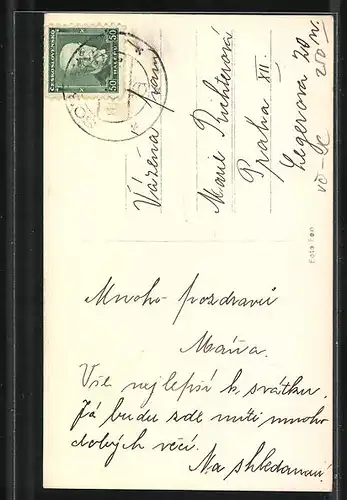 ČESKOSLOVENSKO
50 50
HALÉŘŮ
Vážená paní
Marie Richterová
Praha XII.
Legerova 20
Foto Fon
Mnoho pozdravů
Máňa.
Vše nejlepší k svátku.
Já budu zde míti mnoho
dobých věcí.
Na shledanou!